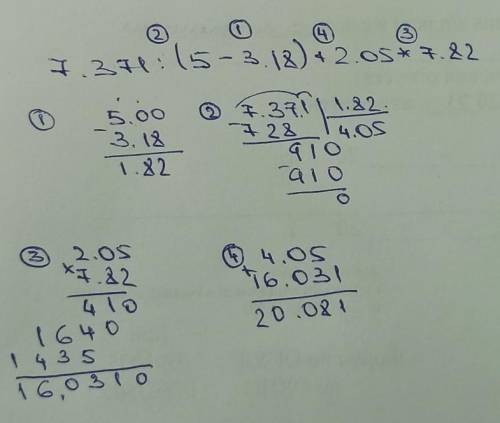 ② ① ④ ③
7.371 : (5 - 3.18) + 2.05 * 7.82
①
5.00
- 3.18
1.82
②
7.371 | 1.82
- 728 | 4.05
910
- 910
0
③
2.05
× 7.82
410
1640
1435
16,0310
④
4.05
+ 16.031
20.081